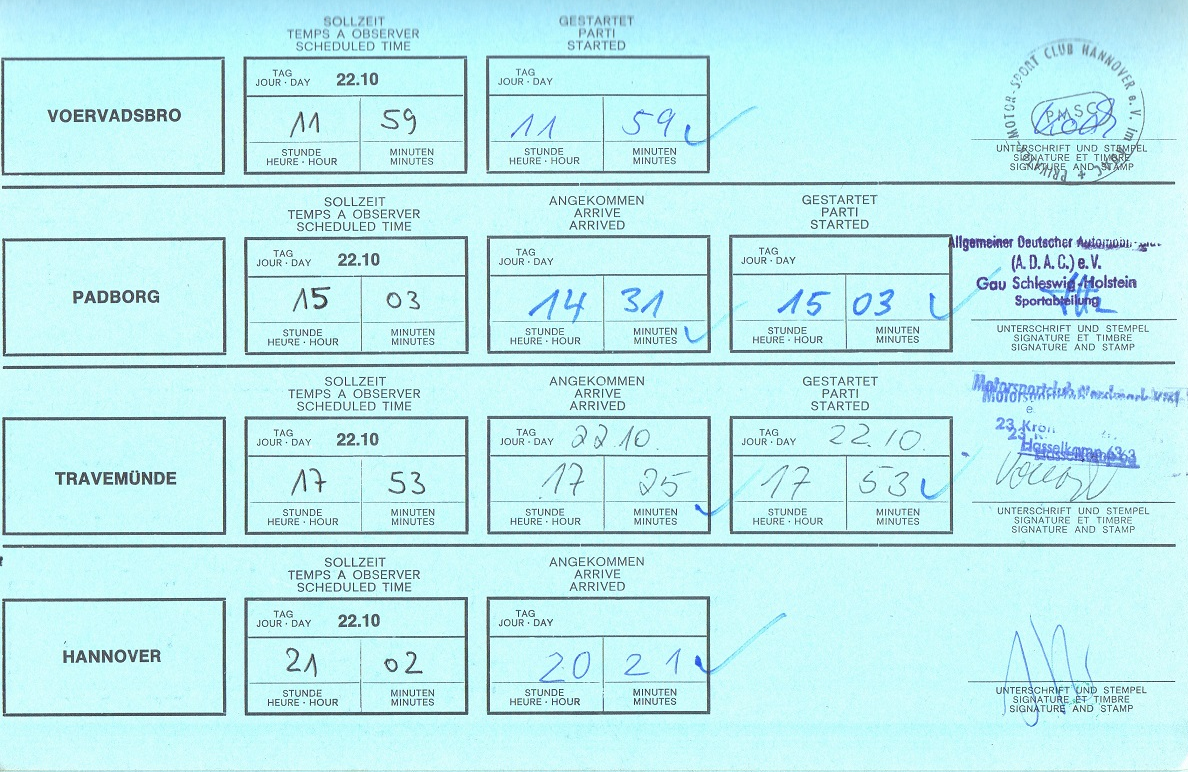 SOLLZEIT GESTARTET
TEMPS A OBSERVER PARTI
SCHEDULED TIME STARTED
VOERVADSBRO
TAG
JOUR · DAY 22.10
11 59
STUNDE MINUTEN
HEURE · HOUR MINUTES
TAG
JOUR · DAY
11 59
STUNDE MINUTEN
HEURE · HOUR MINUTES
MOTOR-SPORT CLUB HANNOVER e. V. im
PMSC
UNTERSCHRIFT UND STEMPEL
SIGNATURE ET TIMBRE
SIGNATURE AND STAMP
SOLLZEIT ANGEKOMMEN GESTARTET
TEMPS A OBSERVER ARRIVE PARTI
SCHEDULED TIME ARRIVED STARTED
PADBORG
TAG
JOUR · DAY 22.10
15 03
STUNDE MINUTEN
HEURE · HOUR MINUTES
TAG
JOUR · DAY
14 31
STUNDE MINUTEN
HEURE · HOUR MINUTES
TAG
JOUR · DAY
15 03
STUNDE MINUTEN
HEURE · HOUR MINUTES
Allgemeiner Deutscher
(A. D. A. C.) e. V.
Gau Schleswig-Holstein
Sportabteilung
UNTERSCHRIFT UND STEMPEL
SIGNATURE ET TIMBRE
SIGNATURE AND STAMP
SOLLZEIT ANGEKOMMEN GESTARTET
TEMPS A OBSERVER ARRIVE PARTI
SCHEDULED TIME ARRIVED STARTED
TRAVEMÜNDE
TAG
JOUR · DAY 22.10
17 53
STUNDE MINUTEN
HEURE · HOUR MINUTES
TAG
JOUR · DAY 22.10.
17 25
STUNDE MINUTEN
HEURE · HOUR MINUTES
TAG
JOUR · DAY 22.10.
17 53
STUNDE MINUTEN
HEURE · HOUR MINUTES
Motorsportclub
e.
23
Hasselkamp 63
UNTERSCHRIFT UND STEMPEL
SIGNATURE ET TIMBRE
SIGNATURE AND STAMP
SOLLZEIT ANGEKOMMEN
TEMPS A OBSERVER ARRIVE
SCHEDULED TIME ARRIVED
HANNOVER
TAG
JOUR · DAY 22.10
21 02
STUNDE MINUTEN
HEURE · HOUR MINUTES
TAG
JOUR · DAY
20 21
STUNDE MINUTEN
HEURE · HOUR MINUTES
UNTERSCHRIFT UND STEMPEL
SIGNATURE ET TIMBRE
SIGNATURE AND STAMP